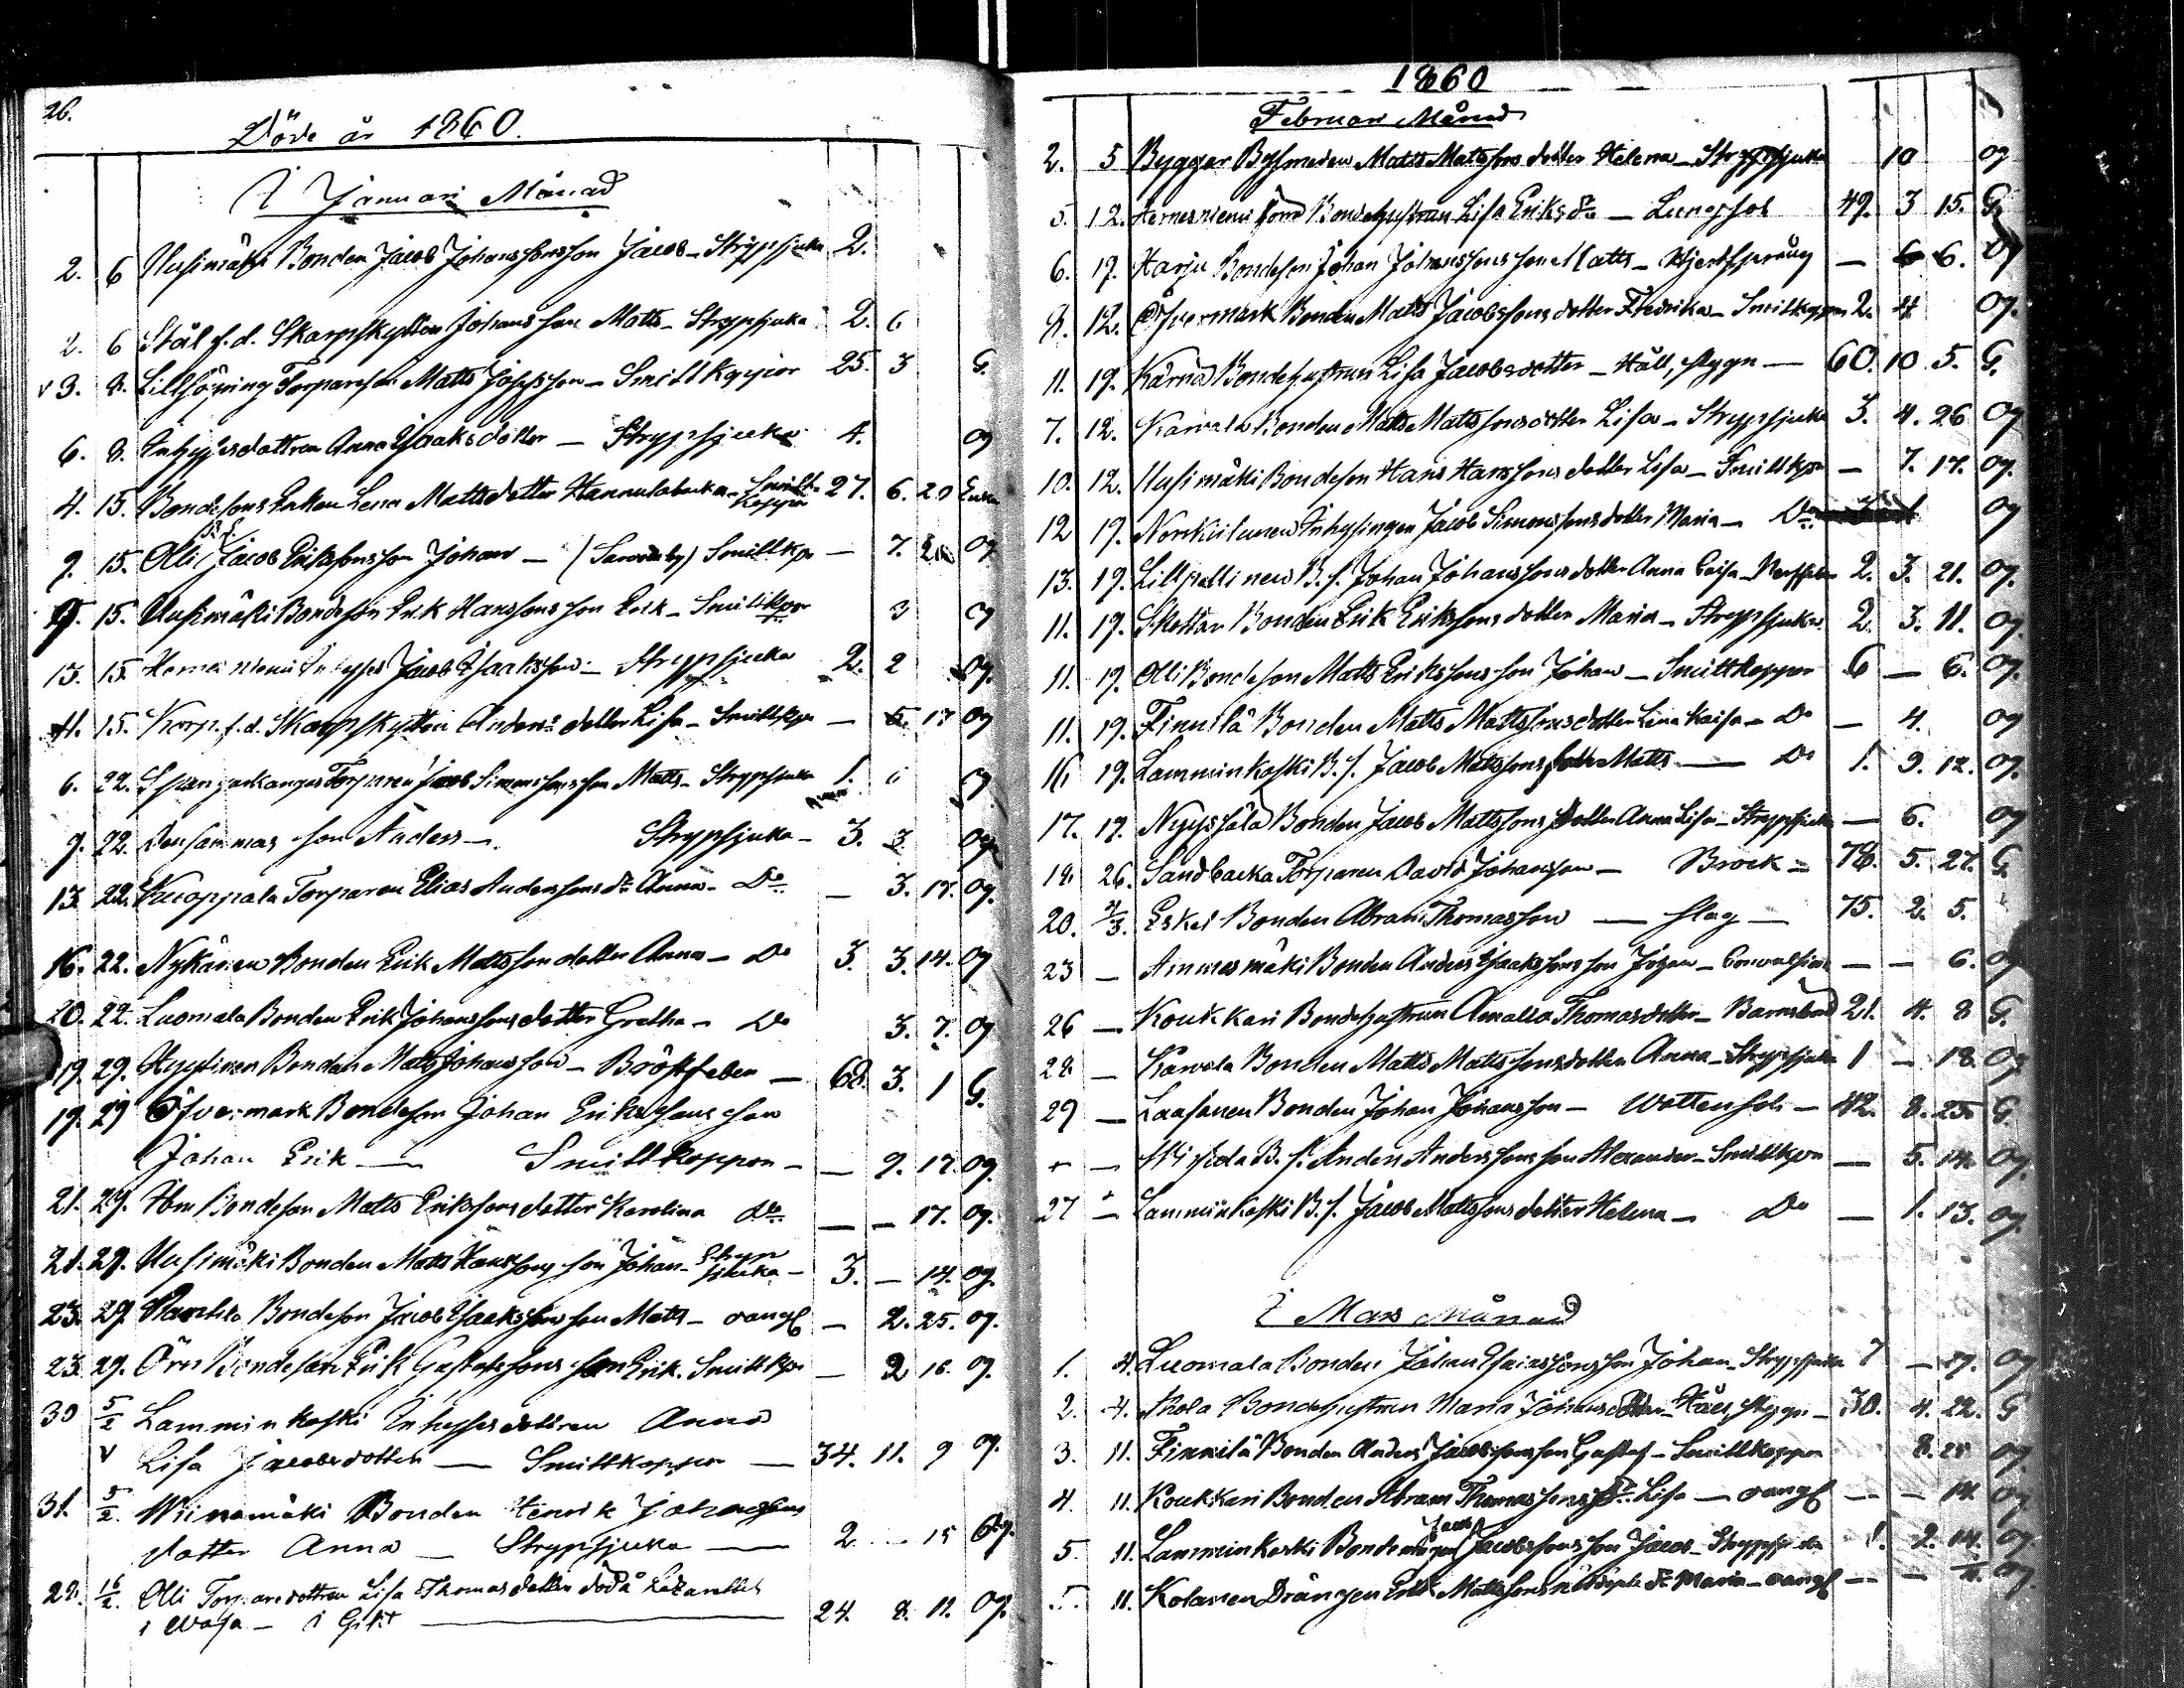 26.
Döde år 1860.
I Januari Månad
2. 6 Uusimäki Bonden Jacob Johanssons son Jacob - Strypsjuka 2.
2. 6 Stål f.d. Skarpskytten Johans son Matts - Strypsjuka 2. 6
v 3. 8. Torpareson Matts Josephsson - Smittkoppor 25. 3 G.
6. 8. Inhysesdottren Anna Isaksdotter - Strypsjuka 4. og
4. 15. Bondesons Enkan Lena Mattsdotter Hannulabacka - Smitt-koppor 27. 6. 20 Enka
9. 15. Olli B.S. Jacob Erikssons son Johan - Smittkpr - 7. og
9. 15. Uusimäki Bondeson Erik Hanssons son Erik - Smittkpr 3 og
13. 15. Inhyses Jacob Isaksson - Strypsjuka 2. 2 og.
11. 15. Korp. f.d. Skarpskytten Anders dotter Lisa - Smittkpr - 5. 17 og
6. 22. Torparen Jacob Simonssons son Matts - Strypsjuka 1. og
9. 22. Densammas son Anders - Strypsjuka - 3. 3. og
13. 22. Kuoppala Torparen Elias Anderssons dr Anna - Do - 3. 17. og.
16. 22. Nykänen Bonden Erik Mattsson dotter Anna - Do 3. 3. 14. og
20. 22. Luomala Bonden Erik Johanssons dotter Gretha - Do 3. 7. og
19. 29. Bonden Matts Johansson - Bröstfeber - 68. 3. 1 G.
19. 29 Öfvermark Bondeson Johan Erikssons son
Johan Erik - Smittkoppor - - 9. 17. og.
21. 29. Bondeson Matts Erikssons dotter Karolina Do - - 17. og.
21. 29. Uusimäki Bonden Matts Hanssons son Johan - Strypsjuka - 3. - 14. og.
23. 29. Bondeson Jacob Isakssons son Matts - oangf - 2. 25. og.
23. 29. Örn Bondeson Erik Gustafssons son Erik. Smittkpr - 2 16. og.
30 5/2 Lamminkoski Inhysesdottren Anna
v Lisa Jacobsdotter - Smittkoppor - 34. 11. 9 og.
31. 5/2. Wiinamäki Bonden Henrik Johanssons
dotter Anna - Strypsjuka - 2. - 15 og.
22. 16/2. Olli Torparedottren Lisa Thomasdotter död å Lazarettet
i Wasa - i Gikt - 24. 8. 11. og.
1860
Februari Månad
2. 5 Byggar Bysmeden Matts Mattssons dotter Helena - Strypsjuka 10 og
5. 12. Hernesniemi Bondehustrun Lisa Eriksdr - Lungsot 49. 3 15. G.
6. 19. Harju Bondeson Johan Johanssons son Matts - - 6. og
8. 12. Öfvermark Bonden Matts Jacobssons dotter Fredrika - Smittkoppor 2. 4 og.
11. 19. Kärnä Bondehustrun Lisa Jacobsdotter - Håll, stygn - 60. 10 5. G.
7. 12. Karvala Bonden Matts Mattssons dotter Lisa - Strypsjuka 3. 4. 26 og
10. 12. Uusimäki Bondeson Hans Hanssons dotter Lisa - Smittkpr - 7. 17. og.
12 19. Inhysingen Jacob Simonssons dotter Maria - Do og
13. 19. Lillpellinen B.S. Johan Johanssons dotter Anna Caisa - 2. 3. 21. og.
11. 19. Skottar Bonden Erik Erikssons dotter Maria - Strypsjuka 2. 3. 11. og.
11. 19. Olli Bondeson Matts Erikssons son Johan - Smittkoppor 6 - 6. og.
11. 19. Finnilä Bonden Matts Mattssons dotter Lina Kaisa - Do - 4. og
16 19. Lamminkoski B.S. Jacob Mattssons son Matts - Do 1. 9. 12. og.
17. 19. Bonden Jacob Mattssons dotter Anna Lisa - Strypsjuka - 6. og
18. 26. Sandbacka Torparen David Johansson - Brock - 78. 5. 27. G.
20. 4/3. Esker Bonden Abram Thomasson - slag - 75. 2. 5.
23 - Ammesmäki Bonden Anders Isakssons son Johan - Convulsion - - 6. og
26 - Koukkari Bondehustrun Amalia Thomasdotter - Barnsbörd 21. 4. 8 G.
28 - Karvala Bonden Matts Mattssons dotter Anna - Strypsjuka 1 - 18. og
29 - Laasanen Bonden Johan Johansson - Wattensot - 42. 8. 25. G.
- B.S. Anders Anderssons son Alexander - Smittkpr - 5. 14. og.
27 - Lamminkoski B.S. Jacob Mattssons dotter Helena - Do - 1. 13. og.
I Mars Månad
1. 4. Luomala Bonden Johan son Johan - Strypsjuka 7 - 19. og
2. 4. Bondehustrun Maria Johansdotter - Håll, stygn - 30. 4. 22. G
3. 11. Finnilä Bonden Anders Jacobssons son Gustaf - Smittkoppor 8. 28 og.
4. 11. Koukkari Bonden Abram Thomassons dr Lisa - oangf - - 14. og.
5. 11. Lamminkoski Jacob Jacobssons son Jacob - Strypsjuka 1. 2. 14. og.
5. 11. Kolanen Drängen Erik Mattssons dr Maria - oangf - - og.